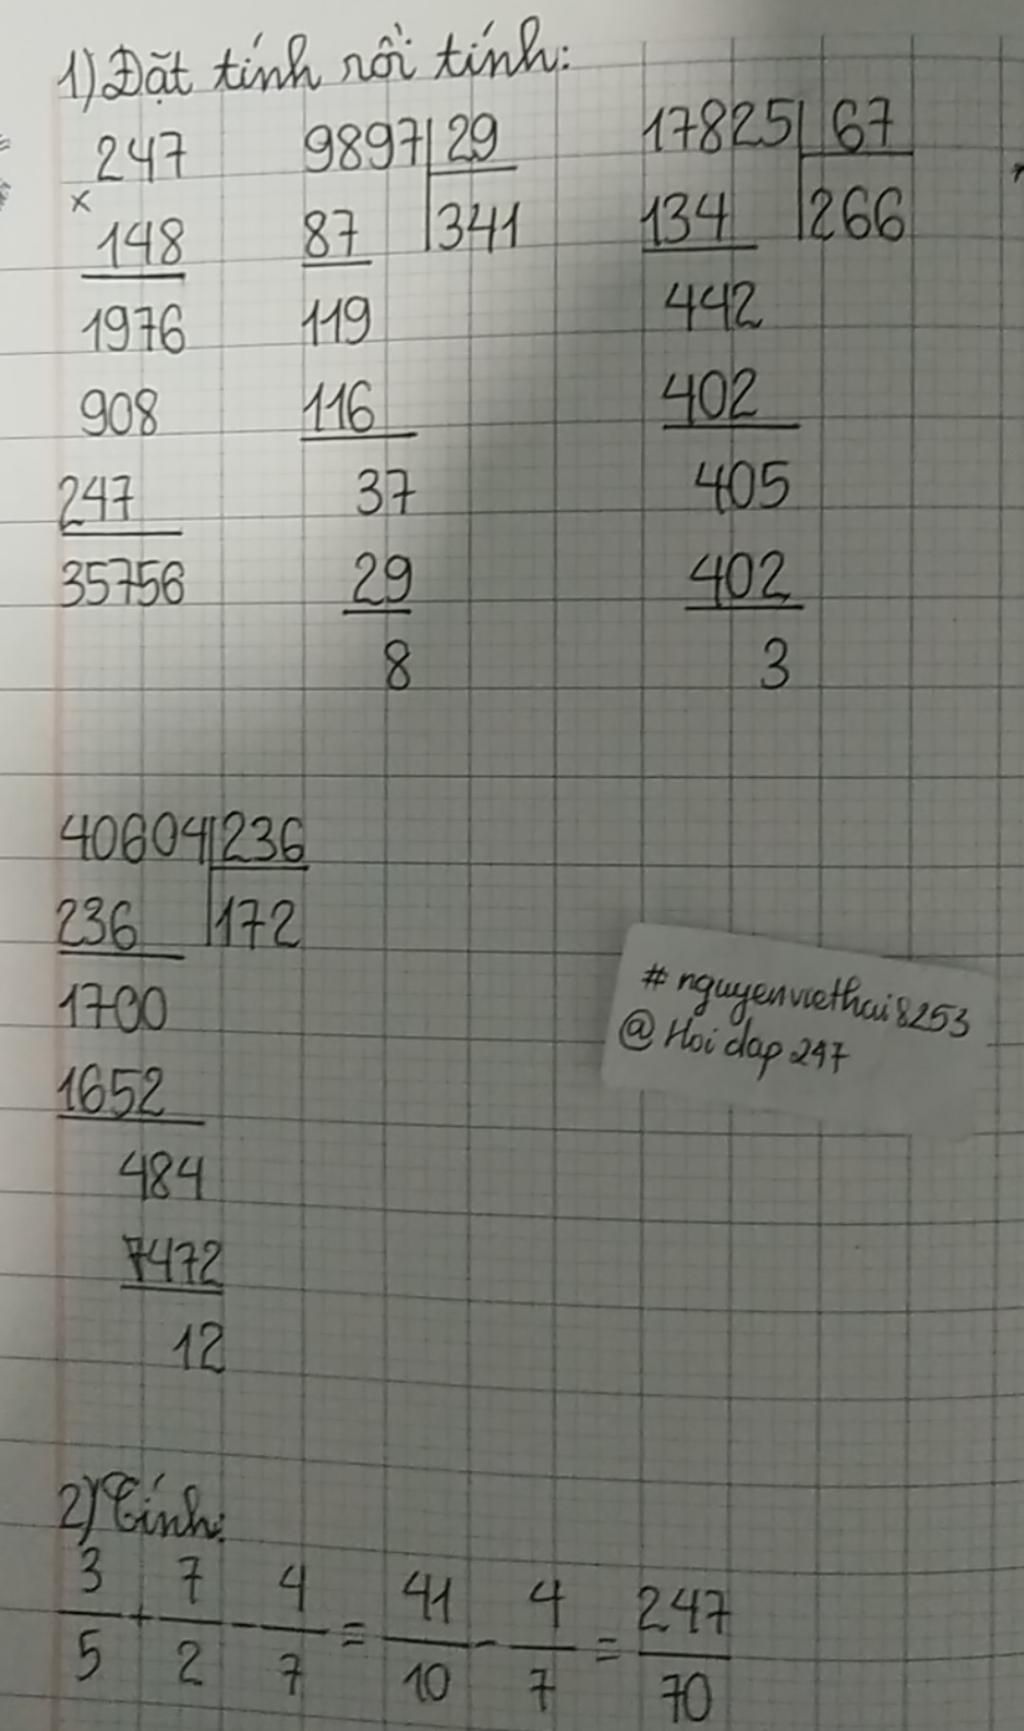 1) Đặt tính rồi tính:
247 9897 29 17825 67
×
148 87 341 134 266
1976 119 442
908 116 402
247 37 405
35756 29 402
8 3
40604 236
236 172
1700
1652
484
7472
12
#nguyenviethai8253
@Hoidap247
2) Tính:
3/5 + 7/2 - 4/7 = 41/10 - 4/7 = 247/70